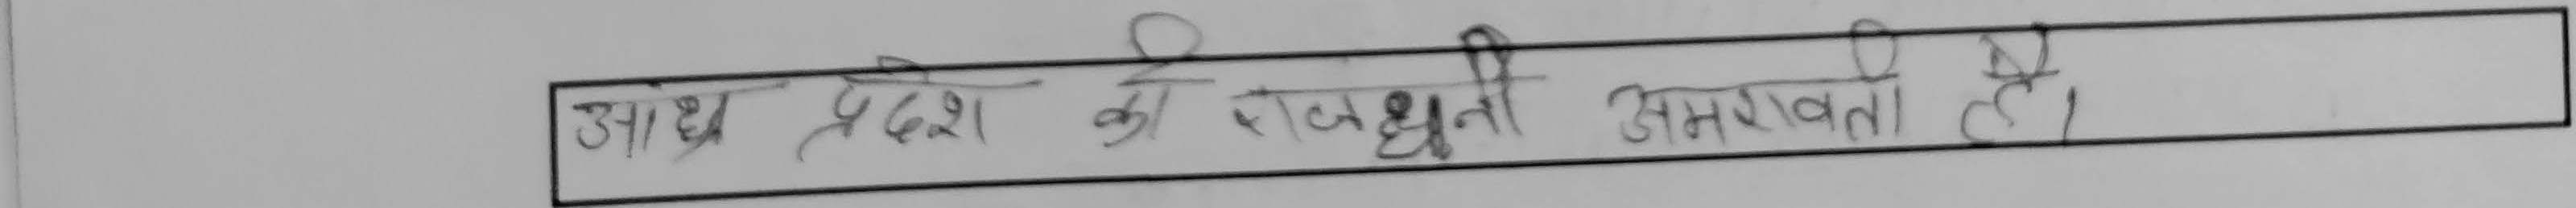 आंध्र प्रदेश की राजधानी अमरावती है।